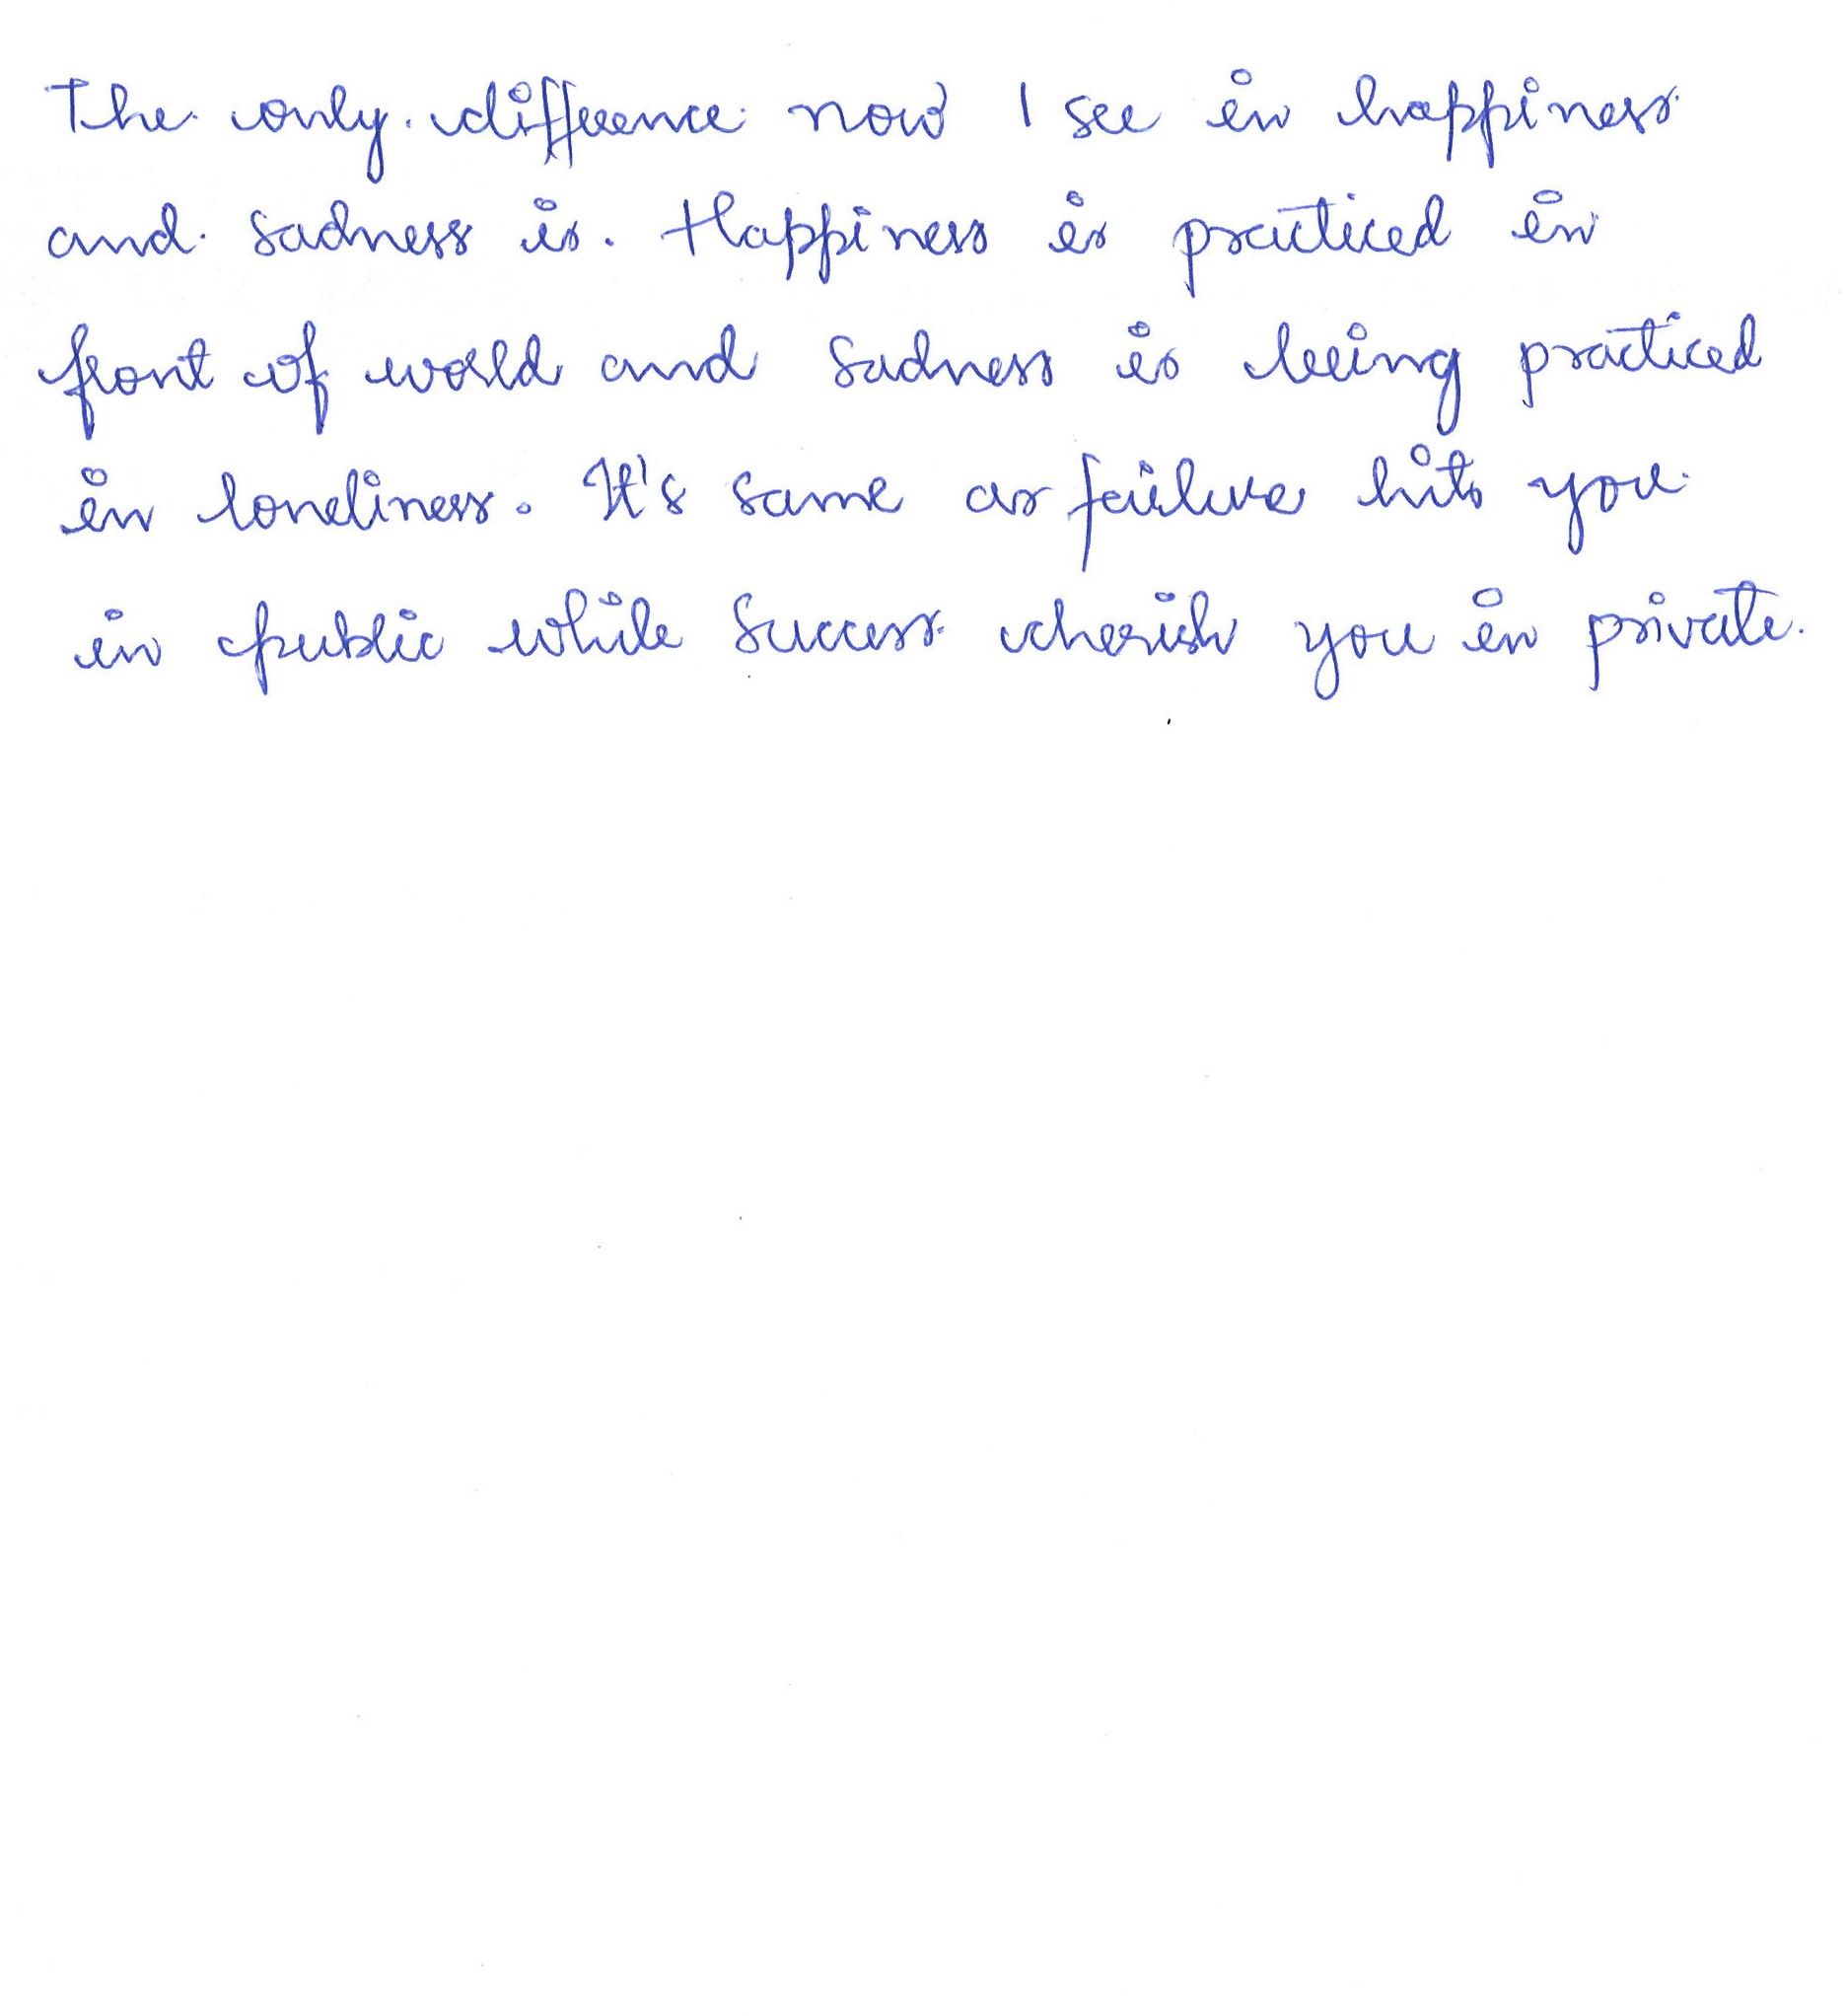 The only difference now I see in happiness
and sadness is. Happiness is practiced in
front of world and sadness is being practiced
in loneliness. It's same as failure hits you
in public while success cherish you in private.